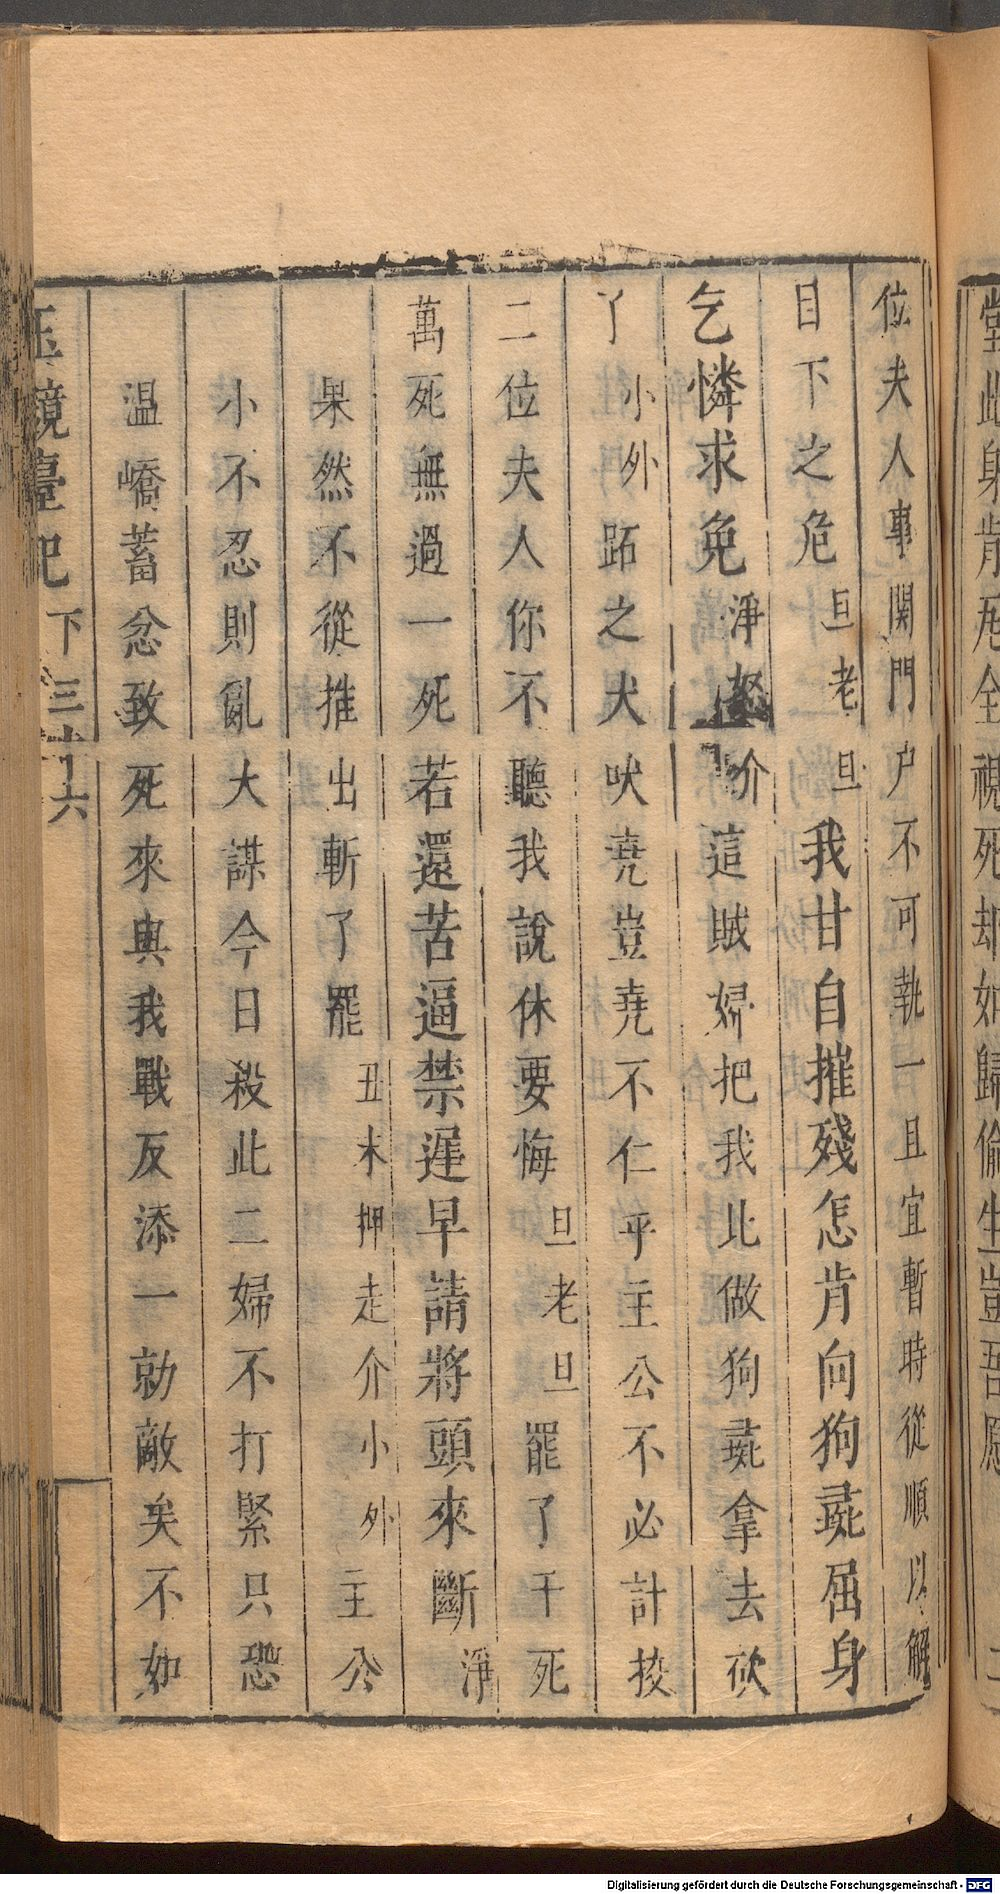 位夫人事関門户不可執一且宜暫時從順以解
目下之危旦老旦我甘自摧殘怎肯向狗彘屈身
乞憐求免淨怒介這賊婦把我比做狗彘拿去砍
了小外跖之犬吠堯豈堯不仁乎主公不必計挍
二位夫人你不聽我說休要悔旦老旦罷了千死
萬死無過一死若還苦逼禁遲早請將頭來斷淨
果然不從推出斬了罷丑末押走介小外主公
小不忍則亂大謀今日殺此二婦不打緊只恐
温嶠蓄忿致死來與我戰反添一勍敵矣不如
玉鏡臺記 下 三十六
堂此身肯尾全視死却如歸偷生豈吾愿
Digitalisierung gefördert durch die Deutsche Forschungsgemeinschaft - DFG